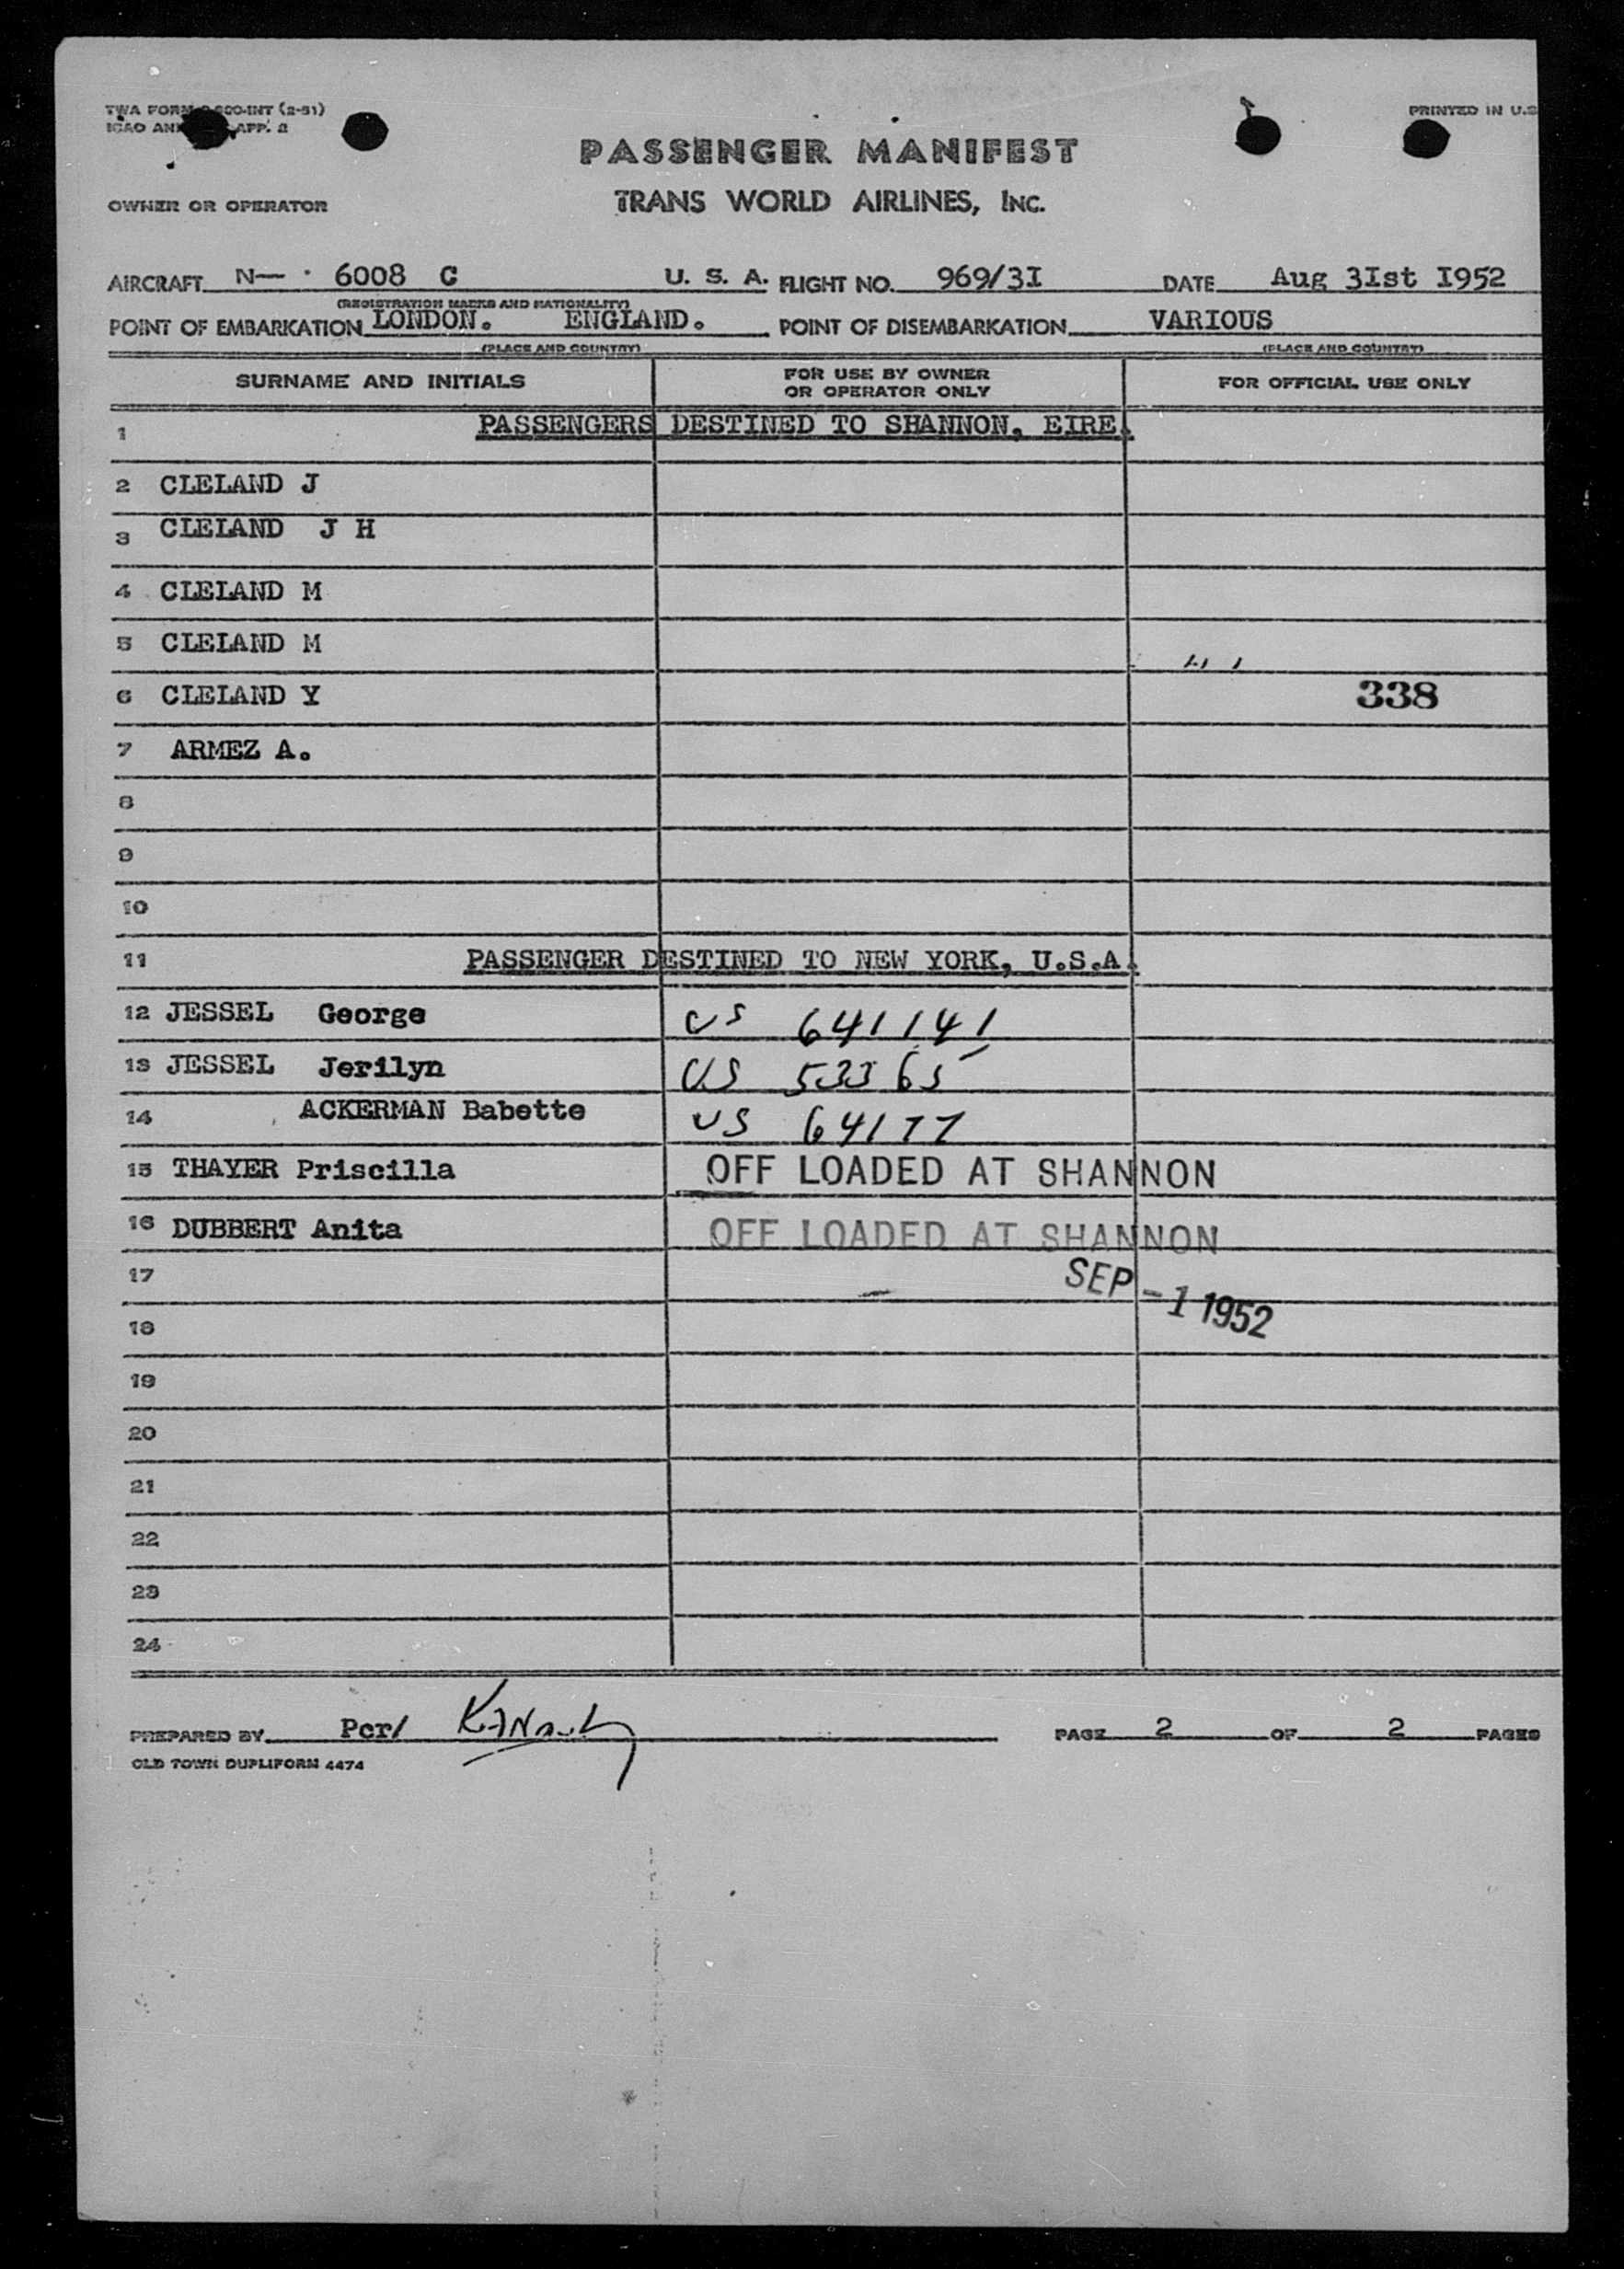 TWA FORM
PRINTED IN U.S
ICAO APP. 2
PASSENGER MANIFEST
OWNER OR OPERATOR
TRANS WORLD AIRLINES, INC.
AIRCRAFT N— 6008 C U. S. A. FLIGHT NO. 969/3I DATE Aug 3Ist I952
(REGISTRATION MARKS AND NATIONALITY)
POINT OF EMBARKATION LONDON. ENGLAND. POINT OF DISEMBARKATION VARIOUS
(PLACE AND COUNTRY) (PLACE AND COUNTRY)
SURNAME AND INITIALS FOR USE BY OWNER OR OPERATOR ONLY FOR OFFICIAL USE ONLY
1 PASSENGERS DESTINED TO SHANNON, EIRE.
2 CLELAND J
3 CLELAND J H
4 CLELAND M
5 CLELAND M
6 CLELAND Y 338
7 ARMEZ A.
8
9
10
11 PASSENGER DESTINED TO NEW YORK, U.S.A.
12 JESSEL George US 641141
13 JESSEL Jerilyn US 53365
14 ACKERMAN Babette US 64177
15 THAYER Priscilla OFF LOADED AT SHANNON
16 DUBBERT Anita OFF LOADED AT SHANNON
17 SEP -1 1952
18
19
20
21
22
23
24
PREPARED BY Per/ PAGE 2 OF 2 PAGES
OLD TOWN DUPLIFORM 4474